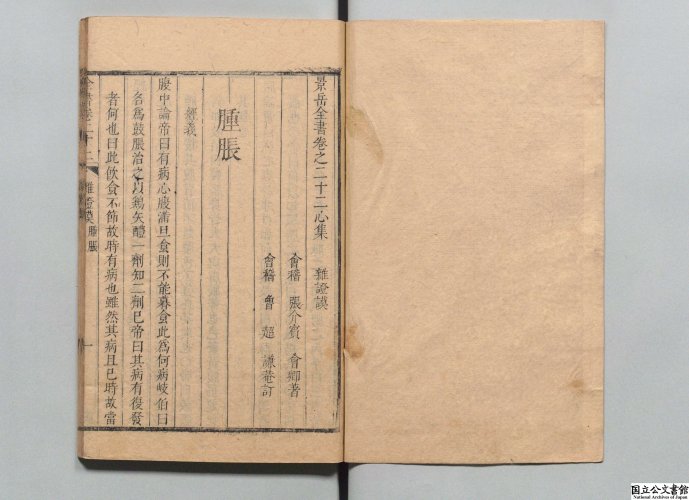 景岳全書卷之二十二心集　雜證謨
會稽　張介賓　會卿著
會稽　魯　超　謙菴訂
腫脹
經義
腹中論帝曰有病心腹滿旦食則不能暮食此為何病岐伯曰
名為鼓脹治之以鷄矢醴一劑知二劑已帝曰其病有復發
者何也曰此飲食不節故時有病也雖然其病且已時故當
全書卷二十二　雜證謨　腫脹　一
国立公文書館
National Archives of Japan